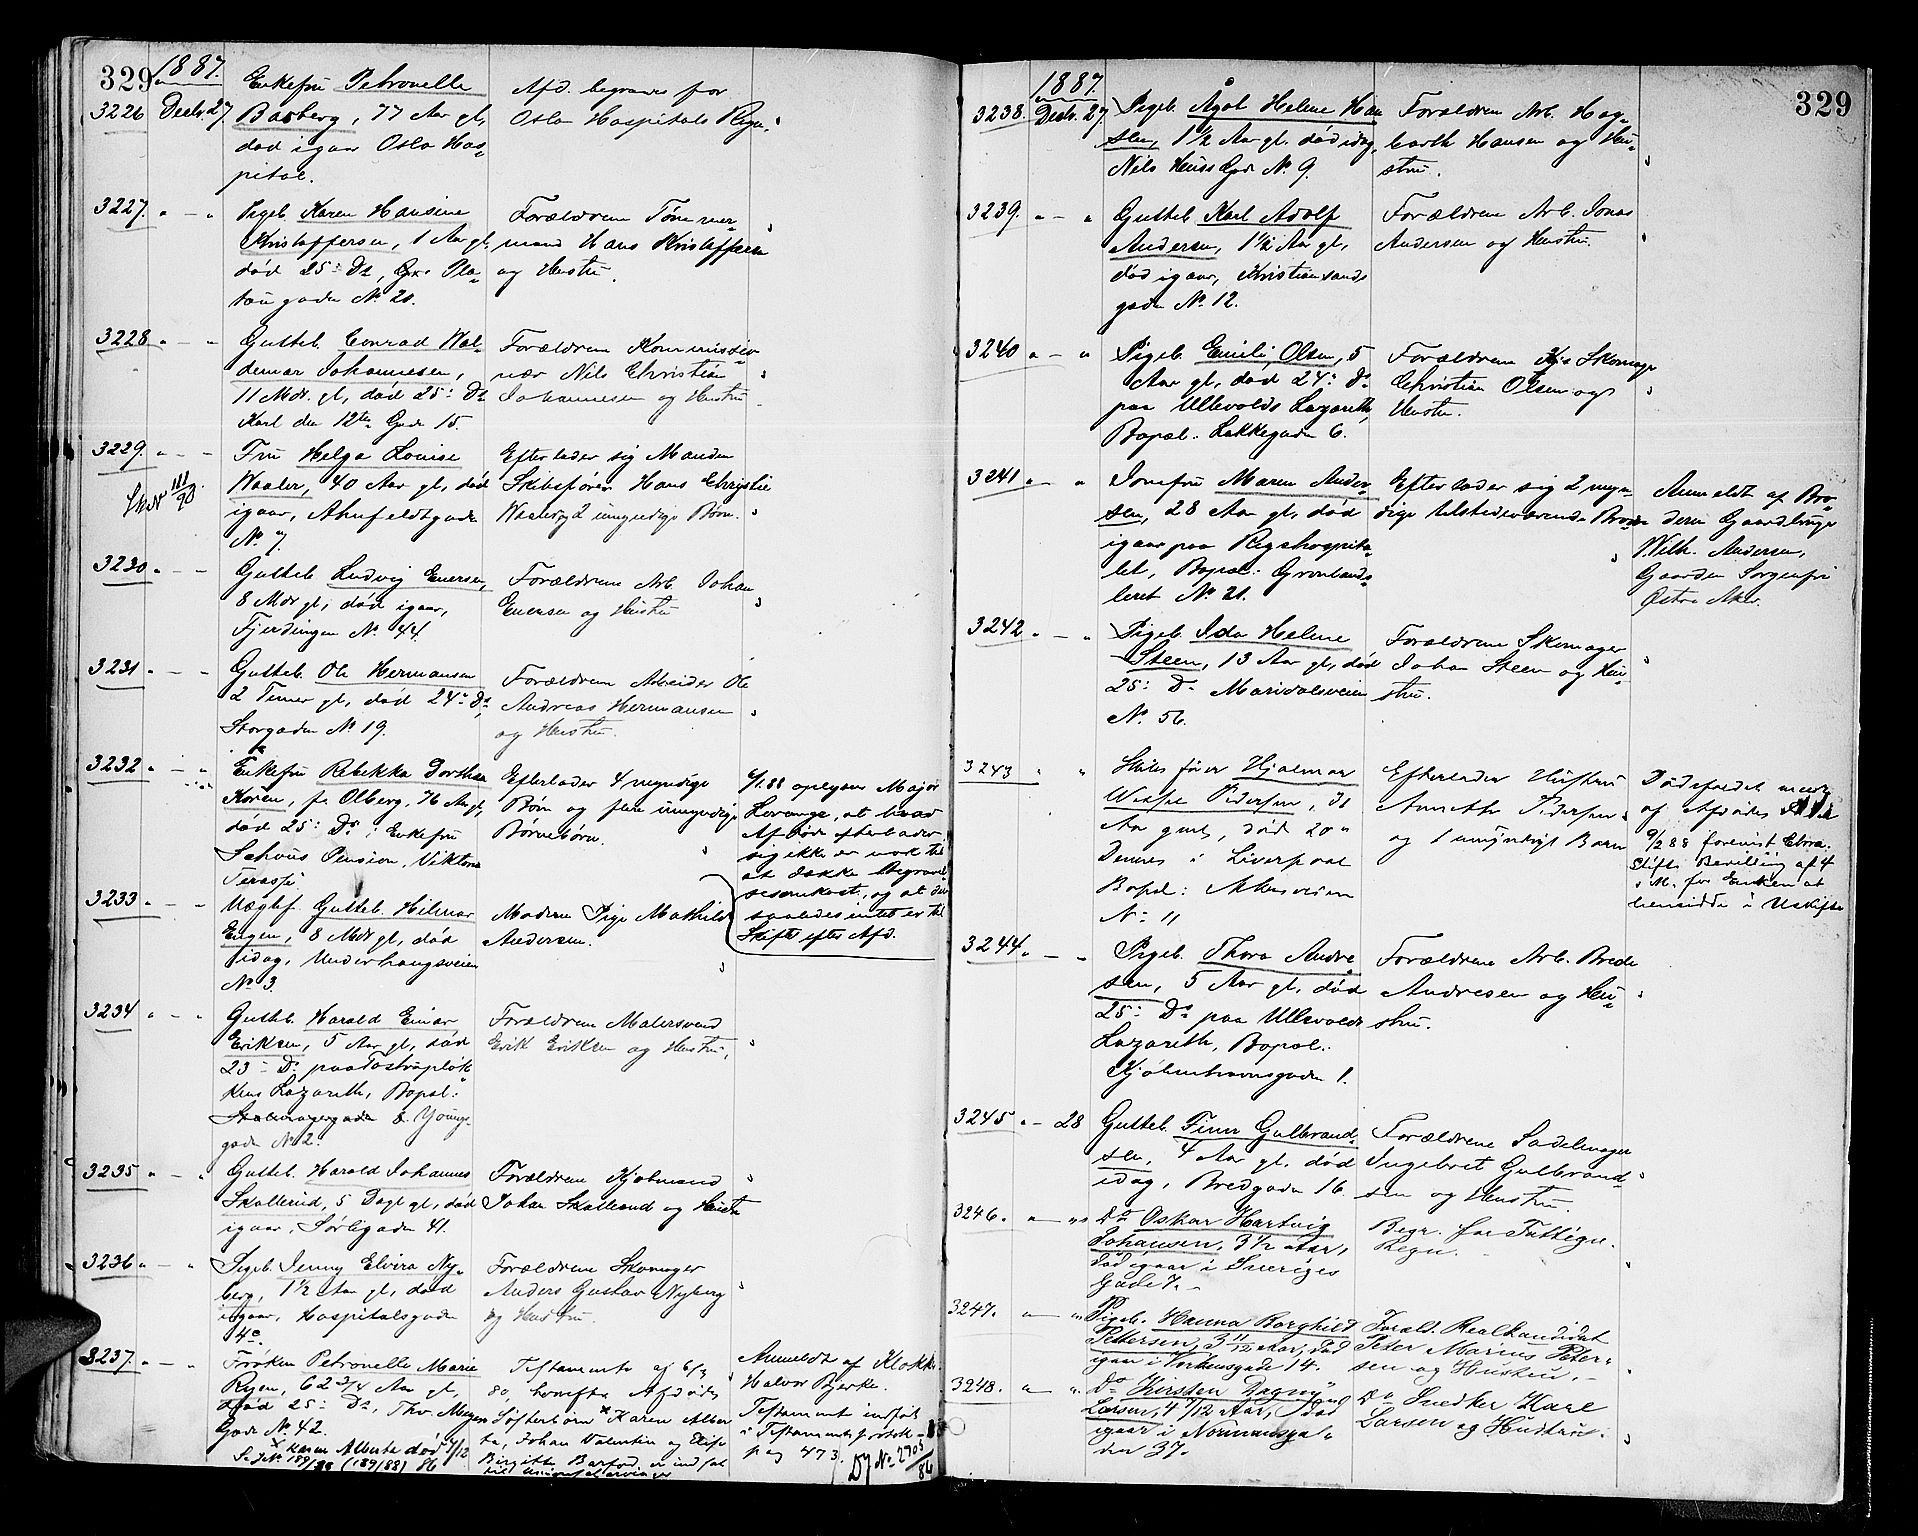 329 1887.
3226 Decbr. 27 Enkefru Petronelle
Barberg, 77 Aar gl,
død igaar Oslo Hos-
pital.
Afd. begraves for
Oslo Hospitals Regn.
3227. " - " Pigeb. Karen Hansine
Kristoffersen, 1 Aar gl,
død 25: Ds,
gade No 20.
Forældrene Tømmer-
mand Hans Kristoffersen
og Hustru.
3228 " - " Gutteb. Conrad Wal-
demar Johannesen,
11 Mdr. gl, død 25: Ds
Karl den 12tes Gade 15.
Forældrene Kommissio-
nær Nils Christian
Johannesen og Hustru.
3229. " - " Fru Helga Louise
Waaler, 40 Aar gl, død
igaar, Ahnfeldtgade
No 7.
Efterlader sig Manden
Skibsfører Hans Christie
Waaler og 2 umyndige Børn.
3230. " - " Gutteb. Ludvig Enersen,
8 Mdr gl, død igaar,
Fjerdingen No 44.
Forældrene Arb. Johan
Enersen og Hustru
3231 " - " Gutteb. Ole Hermansen
2 Timer gl, død 24: Ds,
Storgaden No 19.
Forældrene Arbeider Ole
Andreas Hermansen
og Hustru.
3232 " - " Enkefru Rebekka Dorthea
Koren, f. Olberg, 76 Aar gl,
død 25: Ds i Enkefru
Schøus Pension, Viktoria
Terasse.
Efterlader 4 myndige
Børn og flere umyndige
Børnebørn.
6/1.88 oplyser Major
Lorange, at hvad
Afdøde efterlader
sig ikke er nok til
at dække Begravel-
sesomkost., og at der
saaledes intet er til
Skifte efter Afd.
3233 " - " Uægtef. Gutteb. Hilmar
Eugen, 8 Mdr gl, død
idag, Underhaugsveien
No 3.
Moderen Pige Mathilde
Andersen.
3234 " - " Gutteb. Harald Einar
Eriksen, 5 Aar gl, død
23: Ds paa Tostrupløk
kens Lazareth, Bopæl:
gade No 2.
Forældrene Malersvend
Erik Eriksen og Hustru,
3235 " - " Gutteb. Harald Johannes
Skollerud, 5 Dage gl, død
igaar, Sørligaden 41.
Forældrene Kjøbmand
Johan Skollerud og Hustru
3236 " - " Pigeb. Jenny Elvira Ny-
berg, 1 1/2 Aar gl, død
igaar, Hospitalsgade
4c.
Forældrene Skomager
Anders Gustav Nyberg
og Hustru.
3237. " - " Frøken Petronelle Marie
Ryen, 62 3/4 Aar gl,
død 25: Ds, Thv. Meyers
Gade No 42.
x Karen Alberta død 7/12
86
Testamente af 6/3
80, hvorefter Afdødes
Søsterbørn x Karen Alber
ta, Johan Valentin og Elise
Birgitte Barford er indsat
til Universalarvinger
Anmeldt af Klokker
Halvor Bjerke.
Testament indført
i Testamentsprotok-
pag 473.
DJ No 2705/86
1887. 329
3238. Decbr. 27. Pigeb. Ågot Helene Han
sen, 1 1/2 Aar gl. død idag,
Nils Huus Gade No 9.
Forældrene Arb. Hag-
barth Hansen og Hu-
stru.
3239. " - " Gutteb. Karl Adolf
Andersen, 1 1/2 Aar gl,
død igaar, Kristiansands
gade No 12.
Forældrene Arb. Jonas
Andersen og Hustru.
3240 " - " Pigeb. Emilie Olsen, 5
Aar gl, død 24: Ds
paa Ullevolds Lazareth,
Bopæl: Lakkegaden 6.
Forældrene Skomager
Christian Olsen og
Hustru.
3241 " - " Jomfru Maren Ander-
sen, 28 Aar gl, død
igaar paa Rigshospita-
let, Bopæl: Grønlands-
leret No 21.
Efterlader sig 2 myn-
dige tilstedeværende Brødre
Anmeldt af Bro-
deren Gaardbruger
Wilh. Andersen,
Gaarden Sorgenfri
Østre Aker.
3242 " - " Pigeb. Ida Helene
Steen, 13 Aar gl, død
25: Ds Maridalsveien
No 56.
Forældrene Skomager
Johan Steen og Hu-
stru.
3243 " " Skibsfører Hjalmar
Pedersen, 31
Aar gml, død 20"
Dennes i Liverpool
Bopæl: Akersveien
No 11
Efterlader Hustru
Annette Pedersen
og 1 umyndigt Barn
Dødsfaldet anmeldt
af Afdødes
9/2 88 forevist Chra.
Stifts Bevilling af 4
s. M. for Enken at
hensidde i Uskifte
3244 " - " Pigeb. Thora Andre
sen, 5 Aar gl, død
25: Ds paa Ullevolds
Lazareth, Bopæl:
Kjøbenhavnsgaden 1.
Forældrene Arb. Brede
Andresen og Hu-
stru.
3245 " - 28 Gutteb. Finn Gulbrand-
sen, 4 Aar gl, død
idag, Bredgaden 16.
Forældrene Sadelmager
Ingebret Gulbrand-
sen og Hustru.
3246. " - " Do Oskar Hartvig
Johansen, 3 1/2 Aar,
død igaar i Sveriges
Gade 7.
Begr. for Fattigv.
Regn.
3247. " - " Pigeb. Hanna Borghild
Pettersen, 3 11/12 Aar, død
igaar i gade 14.
Foræld. Realkandidat
Peter Marius Peter-
sen og Hustru.
3248. " - " Do Kirsten Dagny
Larsen, 4 7/12 Aar, død
igaar i Normannsga-
den 37.
Do Snedker Karl
Larsen og Hustru.